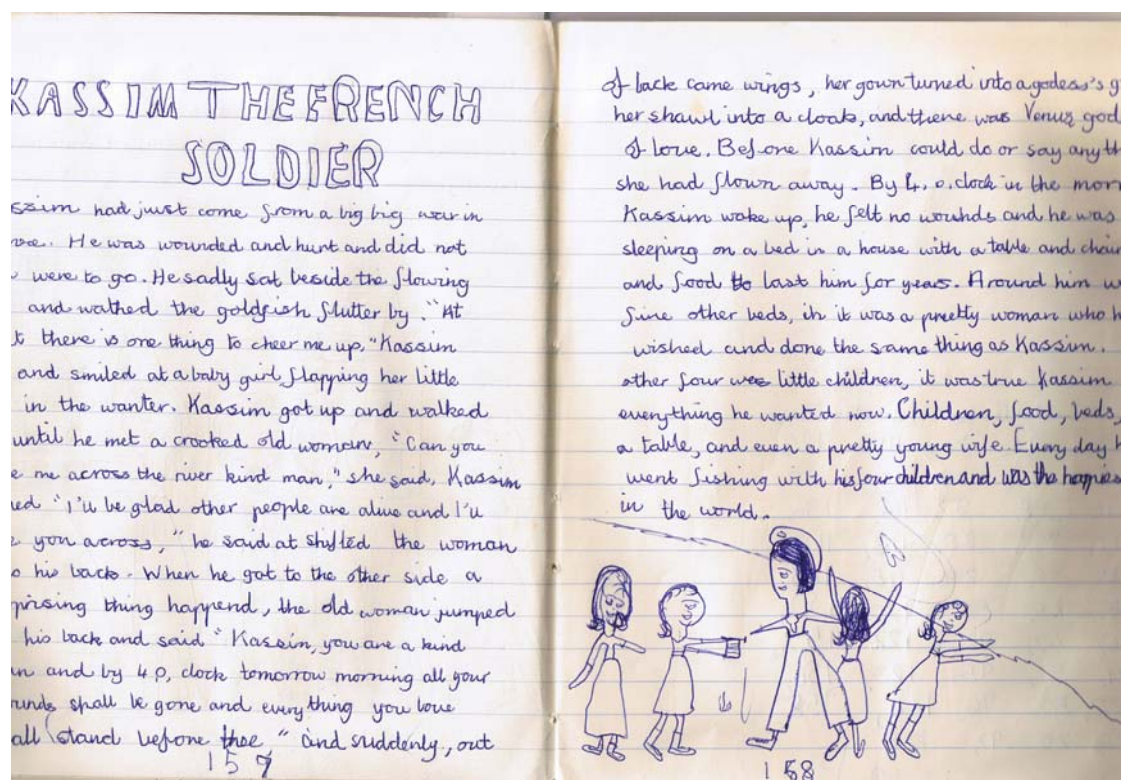 KASSIM THE FRENCH
SOLDIER
ssim had just come from a big big war in
. He was wounded and hurt and did not
were to go. He sadly sat beside the flowing
and wathed the goldfish flutter by. "At
t there is one thing to cheer me up," Kassim
and smiled at a baby girl flapping her little
in the wanter. Kassim got up and walked
until he met a crooked old woman, "Can you
e me across the river kind man," she said, Kassim
ed "i'll be glad other people are alive and I'll
you across," he said at shifted the woman
o his back. When he got to the other side a
prising thing happend, the old woman jumped
his back and said "Kassim, you are a kind
n and by 4 o, clock tomorrow morning all your
unds shall be gone and everything you love
all (stand before thee," and suddenly, out
157
of back came wings, her gown turned into a godess's g
her shawl into a cloak, and there was Venus god
of love. Before Kassim could do or say anyth
she had flown away. By 4. o. clock in the mor
Kassim woke up, he felt no wounds and he was
sleeping on a bed in a house with a table and chair
and food to last him for years. Around him w
fine other beds, in it was a preetty woman who h
wished and done the same thing as Kassim.
other four were little children, it was true Kassim
everything he wanted now. Children, food, beds,
a table, and even a pretty young wife. Every day h
went fishing with his four children and was the happies
in the world.
158